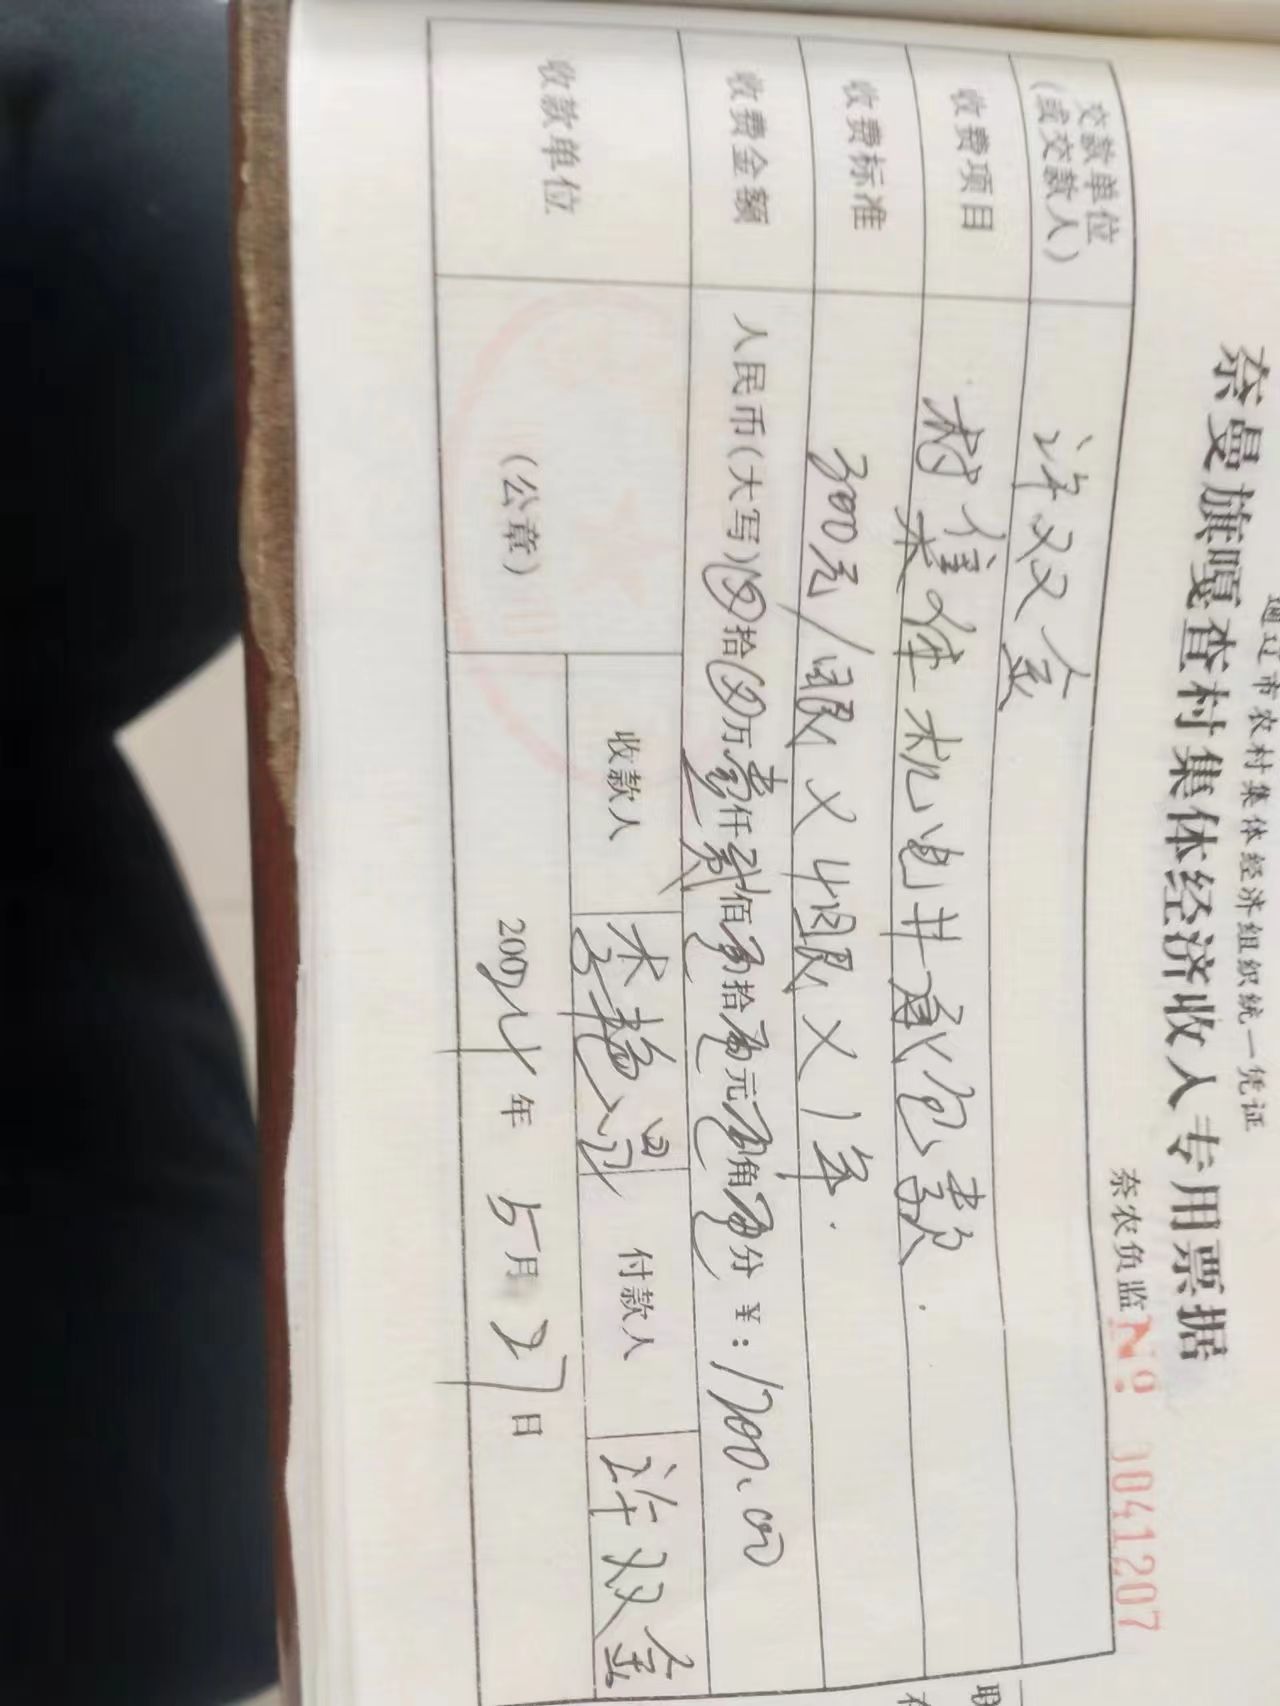 通辽市农村集体经济组织统一凭证
奈曼旗嘎查村集体经济收入专用票据
奈农负监 № 0041207
交款单位
(或交款人)
许双金
收费项目
村集体机电井承包款.
收费标准
300元/眼×4眼×1年.
收费金额
人民币(大写)⊗拾⊗万壹仟贰佰零拾零元零角零分 ¥:1200.00
收款单位
(公章)
收款人
付款人
许双金
2004年5月27日
联